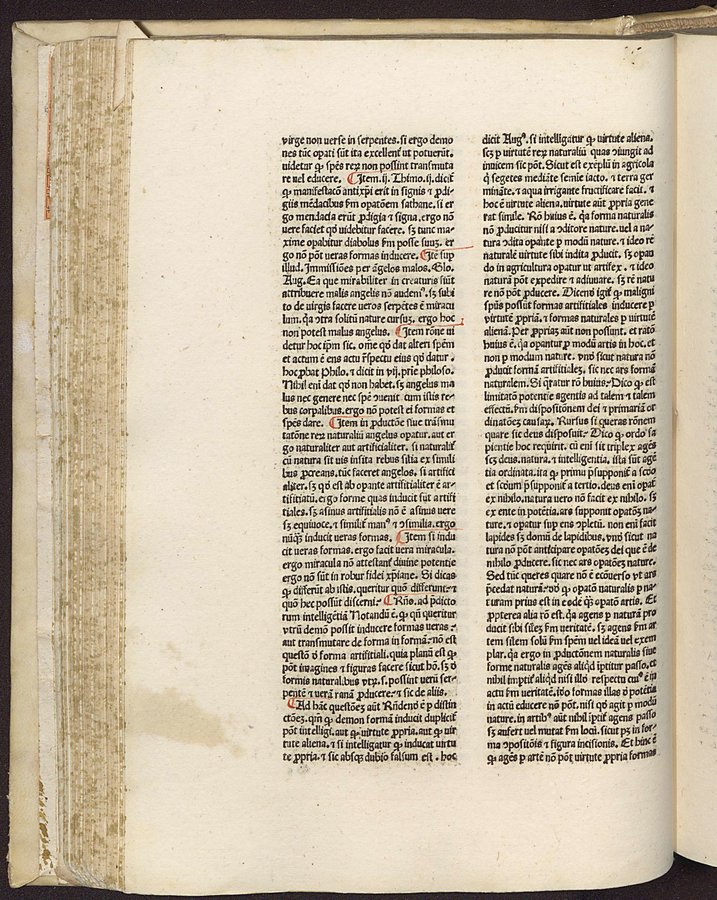 virge non verse in serpentes. si ergo demo
nes tūc opati sūt ita excellenť ut potuerūt.
videtur ꝙ spēs reꝝ non possint transmuta
re uel educere. Itē.ij. Thimo.ij. dicit̄
ꝙ manifestacō antixp̄i erit in signis ⁊ ꝓdi
gijs mēdacibus ẜm opatōem sathane. si er
go mendacia erūt ꝓdigia ⁊ signa. ergo nō
vere faciet qd̓ uidebitur facere. sꝫ tunc ma-
xime opabitur diabolus ẜm posse suuꝫ. er
go nō pōt veras formas inducere. Itē sup
illud. Immissiōes per āgelos malos. Glo.
Aug. Ea que mirabiliter in creaturis fiūt
attribuere malis angelis nō audemꝰ. sꝫ subi
to de virgis facere veros serpētes ē miracu
lum. qꝛ otra solitū nature cursuꝫ. ergo hoc
non potest malus angelus. Item rōne ui
detur hoc ip̄m sic. om̄e qd̓ dat alteri spēm
et actum ē ens actu r̄spectu eius qd̓ datur.
hoc ꝓbat Philo. ⁊ dicit in vij. prie philoso.
Nihil eni dat qd̓ non habet. sꝫ angelus ma
lus nec genere nec spē ɔuenit cum istis re-
bus corpalibus. ergo nō potest ei formas et
spēs dare. Item in ꝓductōe siue trāsmu
tatōne reꝝ naturaliū angelus opatur. aut er
go naturaliter aut artificialiter. si naturalit̄
cū natura sit vis insita rebus silia ex simili
bus ꝓcreans. tūc faceret angelos. si artifici
aliter. sꝫ qd̓ est ab opante artifitialiter ē ar-
tifitiatū. ergo forme quas inducit sūt artifi
tiales. sꝫ asinus artifitialis nō ē asinus uere
sꝫ equiuoce. ⁊ similit̄ manꝰ ⁊ ɔsimilia. ergo
nūqꝫ inducit veras formas. Item si indu
cit veras formas. ergo facit vera miracula.
ergo miracula nō attestant̄ diuine potentie
ergo nō sūt in robur fidei xp̄iane. Si dicas
ꝙ differūt ab istis. queritur quō differunt. ⁊
quō hec possūt discerni. Rn̄o. ad p̄dicto
rum intelligētiā Notandū ē. ꝙ qn̄ queritur
vtrū demō possit inducere formas veras.
aut transmutare de forma in formā. nō est
questō de forma artifitiali. quia planū est ꝙ
pōt imagines ⁊ figuras facere sicut hō. sꝫ d̓
formis naturalibus vtꝝ. s. possint verū ser-
pentē ⁊ verā ranā ꝓducere. ⁊ sic de aliis.
Ad hāc questōeꝫ aūt Rn̄dend̓ ē p distin
ctōeꝫ. qm̄ ꝙ demon formā inducit duplicit̄
pōt intelligi. aut ꝙ virtute ꝓpria. aut ꝙ vir
tute aliena. ⁊ si intelligatur ꝙ inducat virtu
te ꝓpria. ⁊ sic absqꝫ dubio falsum est. hoc
dicit Augꝰ. si intelligatur ꝙ virtute aliena.
scꝫ p virtutē reꝝ naturaliū quas ɔiungit ad
inuicem sic pōt. Sicut est exeplū in agricola
q̄ segetes mediāte semīe iacto. ⁊ terra ger
mināte. ⁊ aqua irrigante fructificare facit. ⁊
hoc ē virtute aliena. virtute aūt ꝓpria gene
rat simile. Rō huius ē. qꝛ forma naturalis
nō ꝓducitur nisi a ɔditore nature. uel a na-
tura ɔdita opante p modū nature. ⁊ ideo rē
naturalē virtute sibi indita ꝓducit. sꝫ opan
do in agricultura opatur ut artifex. ⁊ ideo
naturā pōt expedire ⁊ adiuuare. sꝫ rē natu
re nō pōt ꝓducere. Dicend̓ igit̄ ꝙ maligni
spūs possūt formas artifitiales inducere p
virtutē ꝓpriā. ⁊ formas naturales p virtutē
alienā. Per ꝓpriaꝫ aūt non possunt. et ratō
huius ē. qꝛ opantur p modū artis in hoc. et
non p modum nature. vn̄ sicut natura nō
ꝓducit formā artifitialeꝫ. sic nec ars formā
naturalem. Si q̄ratur rō huius. Dico ꝙ est
limitatō potentie agentis ad talem ⁊ talem
effectū. ẜm dispositōnem dei ⁊ primariā or
dinatōeꝫ causaꝝ. Rursus si queras rōnem
quare sic deus disposuit. Dico ꝙ ordo sa
pientie hoc requirit. cū eni sit triplex agēs
scꝫ deus. natura. ⁊ intelligentia. ista sūt agē
tia ordinata. ita ꝙ primū p̄supponit̄ a scd̓o
et scd̓um p̄supponit̄ a tertio. deus eni opat̄
ex nihilo. natura vero nō facit ex nihilo. sꝫ
ex ente in potētia. ars supponit opatōeꝫ na-
ture. ⁊ opatur sup ens ɔpletū. non eni facit
lapides sꝫ domū de lapidibus. vn̄ sicut na
tura nō pōt anticipare opatōeꝫ dei que ē de
nihilo ꝓducere. sic nec ars opatōeꝫ nature.
Sed tūc queres quare nō ē ecōuerso vt ars
p̄cedat naturā. qd̓ ꝙ opatō naturalis p na
turam prius est in eode ꝙ opatō artis. Et
ꝓpterea alia rō est. qꝛ agens p naturā pro
ducit sibi sileꝫ ẜm veritatē. sꝫ agens ẜm ar
tem silem solū ẜm spēm vel ideā uel exem
plar. qꝛ ergo in ꝓductōnem naturalis siue
forme naturalis agēs aliqd̓ iptitur passo. et
nihil imptit̄ aliqd̓ nisi illd̓ respectu cuiꝰ ē in
actu ẜm veritatē. id̓o formas illas d̓ potētia
in actū educere nō pōt. nisi qd̓ agit p modū
nature. in artibꝰ aūt nihil iptit̄ agens passo
sꝫ aufert uel mutat ẜm locū. sicut pꝫ in for-
ma ɔpositōis ⁊ figura incisionis. Et hinc ē
ꝙ agēs p artē nō pōt virtute ꝓpria formas